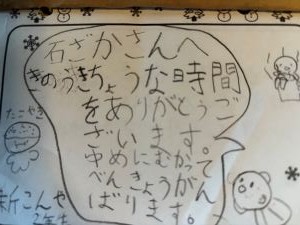 石ざかさんへ
きちょうな時間
をありがとうご
ざいます。
ゆめにむかって
べんきょうがん
ばります。
たこやき
新こんや
2年生